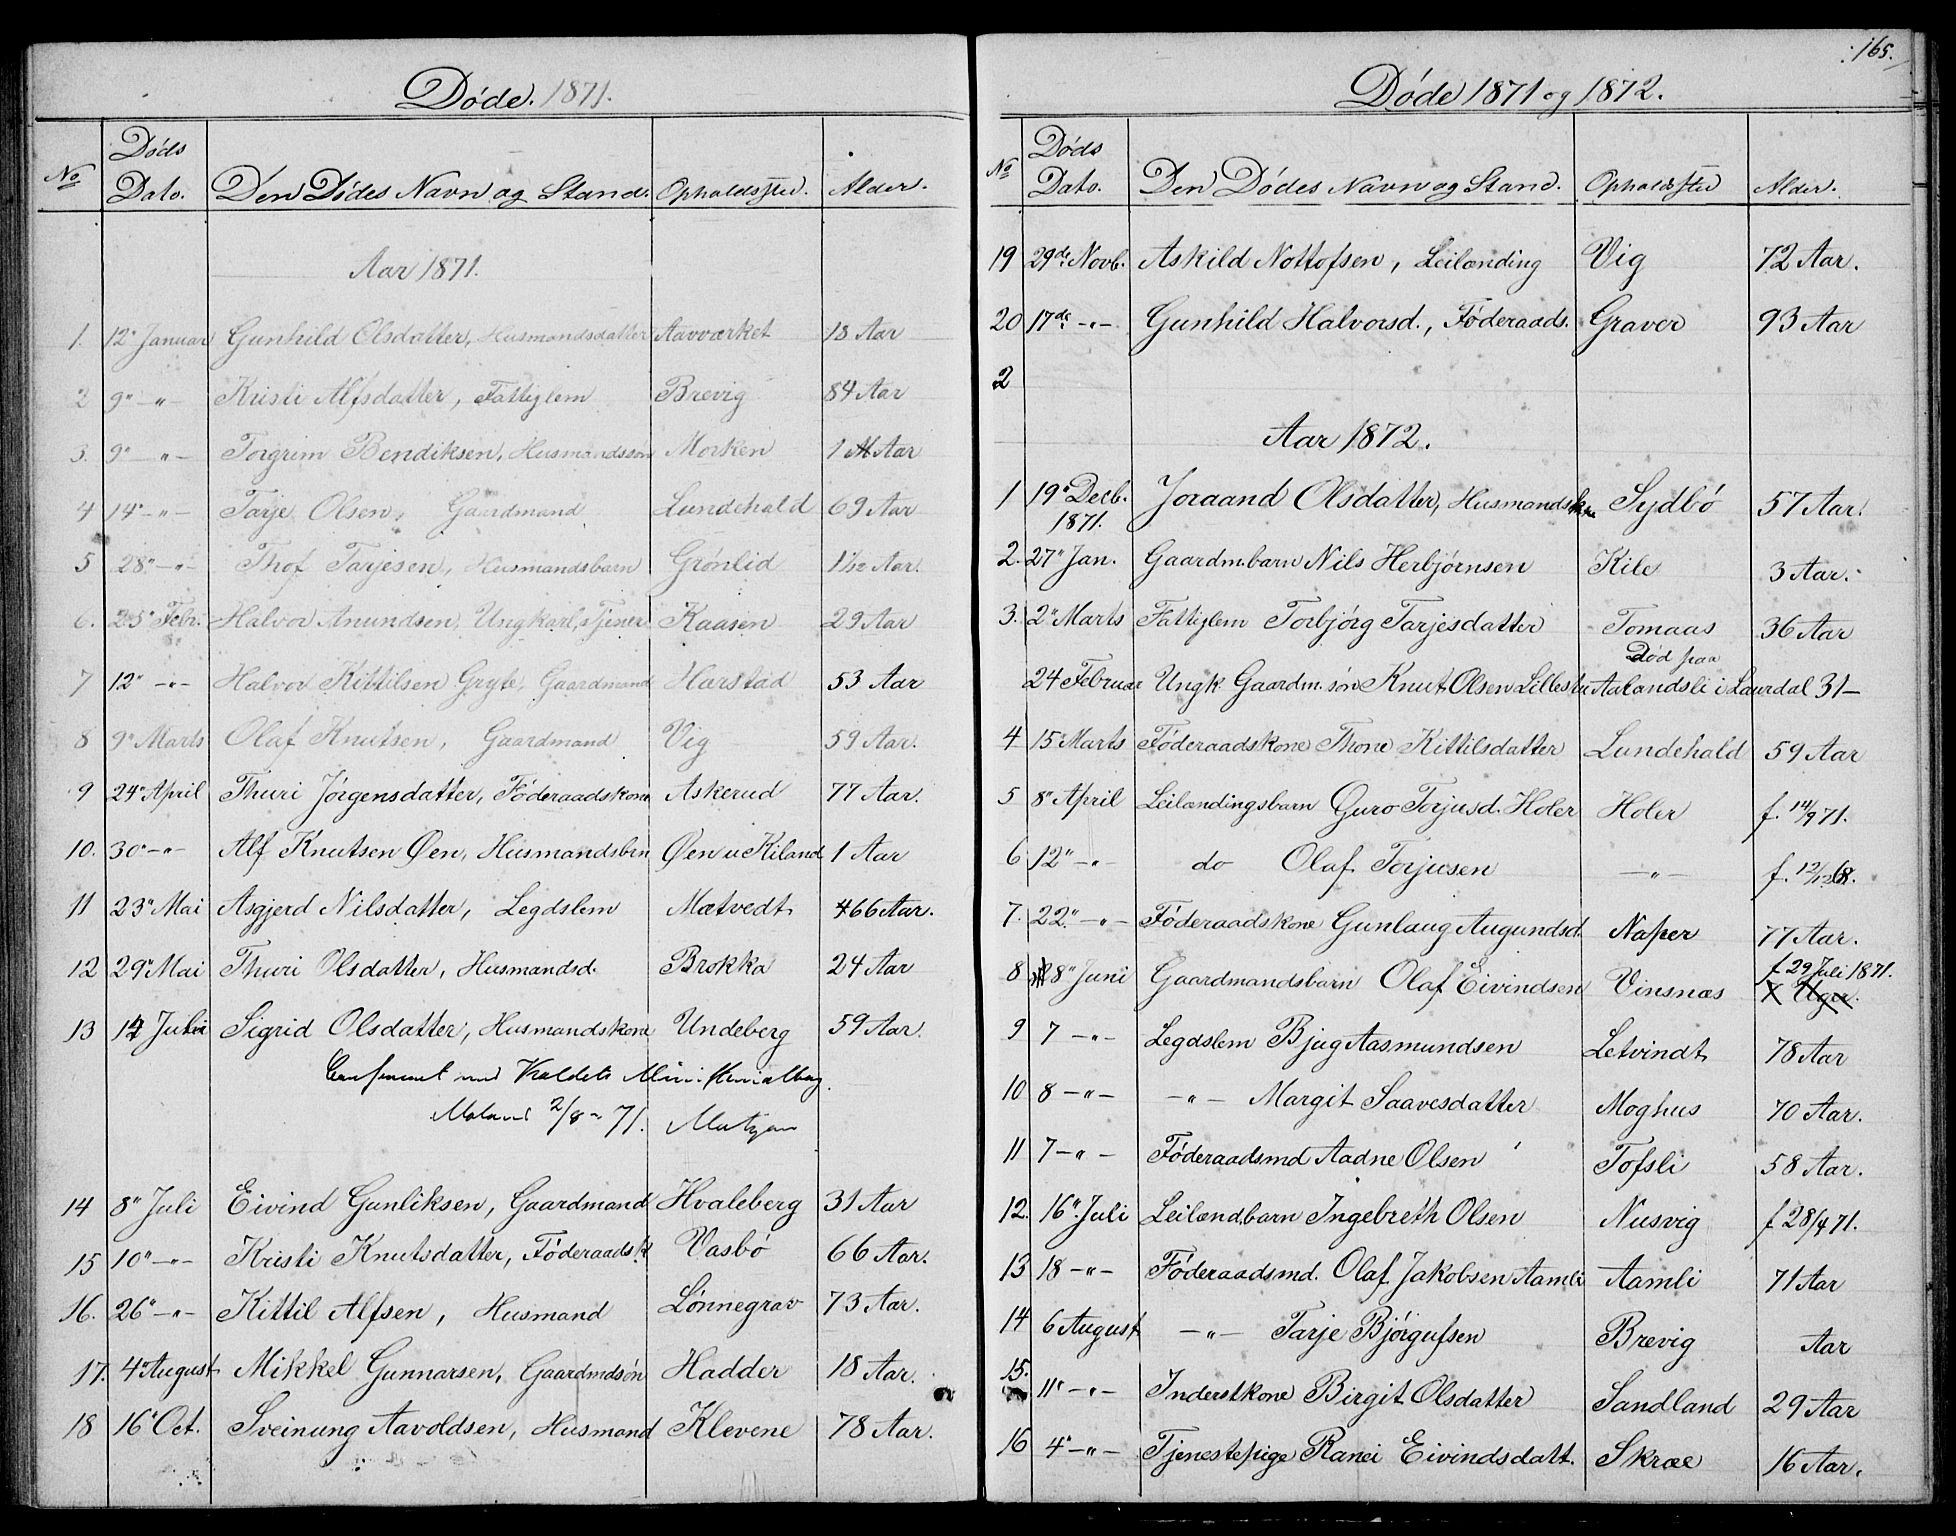 Døde. 1871.
No Døds Dato. Den Dødes Navn og Stand. Opholdssted. Alder.
Aar 1871.
1. 12" Januar Gunhild Olsdatter, Husmandsdatter Aavværket 18 Aar
2 9" -"- Kristi Alfsdatter, Fattiglem Brevig 84 Aar
3. 9" -"- Torgrim Bendiksen, Husmandssøn Morken 1 Aar
4 14" -"- Tarje Olsen, Gaardmand Lundehald 69 Aar
5 28" -"- Thof Tarjesen, Husmandsbarn Grønlid 1 1/12 Aar.
6. 25" Febr. Halvor Anundsen, Ungkarl, Tjener Kaasen 29 Aar
7 12" -"- Halvor Kittilsen Gryte, Gaardmand Harstad 53 Aar
8 9" Marts Olaf Knutsen, Gaardmand Vig 59 Aar.
9 24" April Thuri Jørgensdatter, Føderaadskone Askerud 77 Aar.
10. 30" -"- Alf Knutsen Øen, Husmandsbrn Øen u. Kiland 1 Aar
11 23" Mai Asgjerd Nilsdatter, Legdslem Mætvedt 66 Aar.
12 29" Mai Thuri Olsdatter, Husmandsd. Brokka 24 Aar
13 14 Juli Sigrid Olsdatter, Husmandskone Undeberg 59 Aar.
Moland 2/8 - 71.
14 8" Juli Eivind Gunliksen, Gaardmand Hvaleberg 31 Aar
15 10" -"- Kristi Knutsdatter, Føderaadsk. Vasbø 66 Aar.
16. 26" -"- Kittil Alfsen, Husmand Lønnegrav 73 Aar.
17. 4" August Mikkel Gunnarsen, Gaardmdsøn Hadder 18 Aar.
18 16" Oct. Sveinung Aavoldsen, Husmand Klevene 78 Aar.
165.
Døde 1871 og 1872.
No Døds Dato. Den Dødes Navn og Stand. Opholdssted Alder.
19 29de Novb. Askild Nottofsen, Leilænding Vig 72 Aar.
20 17de -"- Gunhild Halvorsd., Føderaads. Graver 93 Aar
2
Aar 1872.
1 19" Decb. 1871. Joraand Olsdatter, Husmandskne Sydbø 57 Aar.
2. 27" Jan. Gaardm.barn Nils Herbjørnsen Kile 3 Aar.
3. 2" Marts Fattiglem Torbjørg Tarjesdatter Tomaas 36 Aar
24 Februar Ungk. Gaardm.søn Knut Olsen Lillestu Død paa Aalandsli i Laurdal 31 -
4 15 Marts Føderaadskone Thone Kittilsdatter Lundehald 59 Aar
5 8" April Leilændingsbarn Guro Torjusd. Holer Holer f. 14/9 71.
6 12" -"- do Olaf Torjusen -"- f. 12/12 68.
7. 22" -"- Føderaadskone Gunlaug Augundsd. Naper 77 Aar.
8 8" Juni Gaardmandsbarn Olaf Eivindsen Vinsnæs f. 29 Juli 1871.
9 7 -"- Legdslem Bjug Aasmundsen Letvindt 78 Aar
10 8 -"- -"- Margit Saavesdatter Moghus 70 Aar.
11 7 -"- Føderaadsmd Aadne Olsen Tofsli 58 Aar.
12. 16" Juli Leilænd.barn Ingebreth Olsen Nusvig f 28/4 71.
13 18 -"- Føderaadsmd. Olaf Jakobsen Aamli Aamli 71 Aar
14 6 August -"- Tarje Bjørgufsen Brevig Aar
15. 11" -"- Inderstkone Birgit Olsdatter Sandland 29 Aar
16 4" -"- Tjenestepige Ranei Eivindsdatt. Skræe 16 Aar.